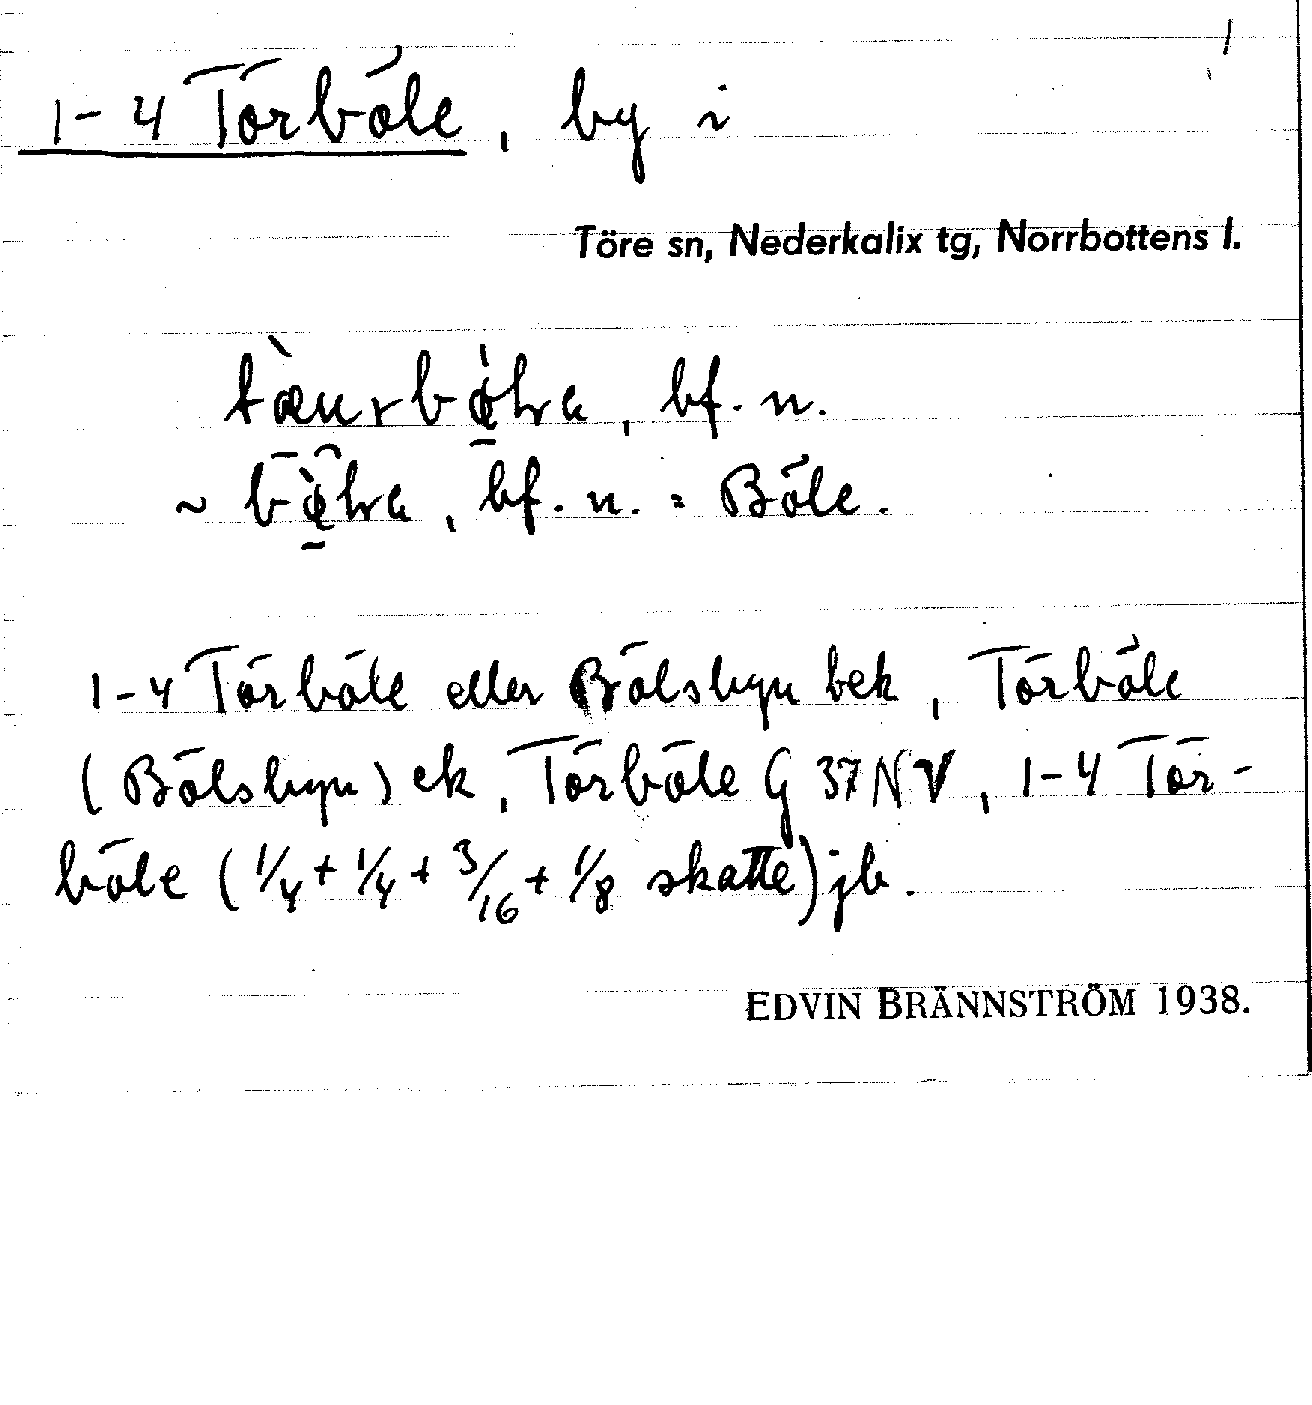 1
1-4 Törböle, by i
Töre sn, Nederkalix tg, Norrbottens l.
bf. n.
~ bf. n. = Böle.
1-4 Törböle eller Bölsbyn bek, Törböle
(Bölsbyn) ek, Törböle G 37 NV, 1-4 Tör-
böle (1/4 + 1/4 + 3/16 + 1/8 skatte) jb.
EDVIN BRÄNNSTRÖM 1938.